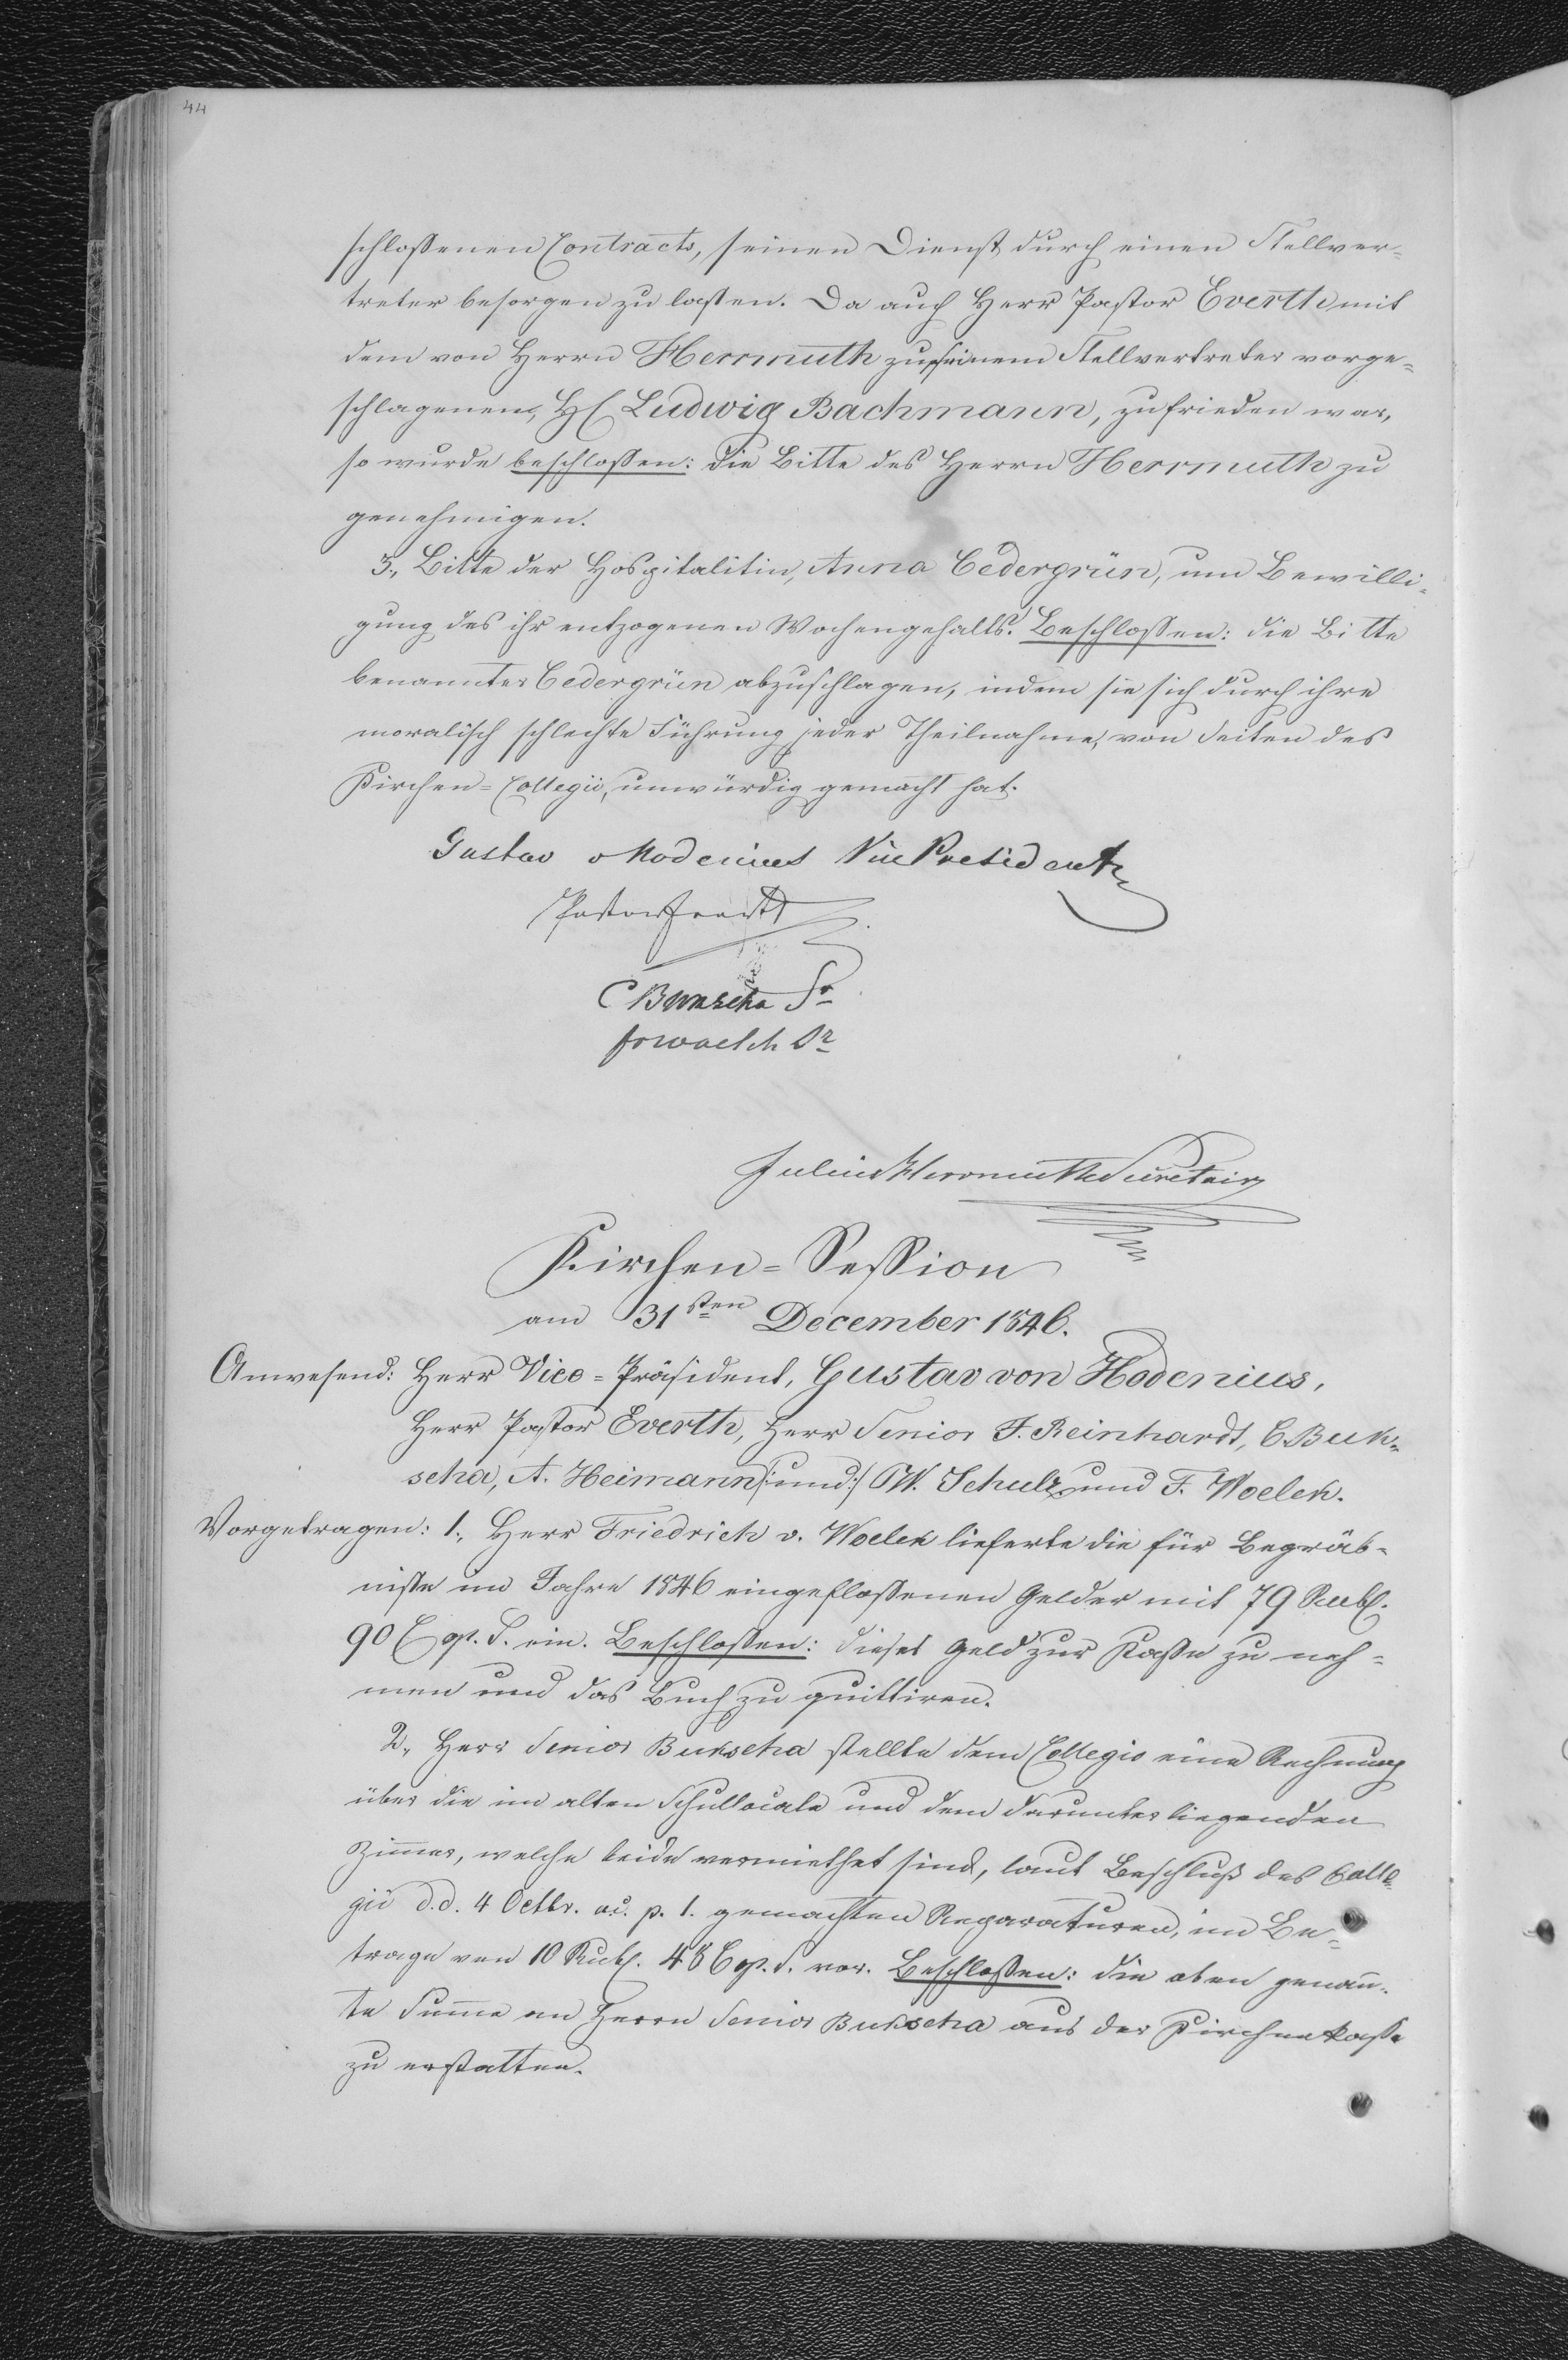 44
schloßenen Contracts, seinen Dienst durch einen Stellver-
treter besorgen zu laßen. Da auch Herr Pastor Everth mit
dem von Herrn Herrmuth zu seinem Stellvertreter vorge-
schlagenen, H. Ludwig Bachmann, zufrieden war,
so wurde beschloßen: die Bitte des Herrn Herrmuth zu
genehmigen.
3., Bitte der Hospitalitin, Anna Cedergrün, um Bewilli-
gung des ihr entzogenen Wochengehalts. Beschloßen: die Bitte
benannter Cedergrün abzuschlagen, indem sie sich durch ihre
moralisch schlechte Führung jeder Theilnahme, von Seiten des
Kirchen-Collegii, unwürdig gemacht hat.
Gustav v Hodenius Vice President
Pastor Everth
C Bukscha Sr
F v Woelck Sr
Julius Herrmuth Secretair
Kirchen-Session
am 31sten December 1846.
Anwesend: Herr Vice-Präsident, Gustav von Hodenius,
Herr Pastor Everth, Herr Senior F. Reinhardt, C. Buk-
scha, A. Heimann /:und:/ W. Schulz und F. Woelck.
Vorgetragen: 1., Herr Friedrich v. Woelck lieferte die für Begräb-
niße im Jahre 1846 eingefloßenen Gelder mit 79 Rubl.
90 Cop. S. ein. Beschloßen: dieses Geld zur Kaße zu neh-
men und das Buch zu quittiren.
2., Herr Senior Bukscha stellte dem Collegio eine Rechnung
über die im alten Schullocale und dem darunter liegenden
Zim̅er, welche beide vermiethet sind, laut Beschluß des Colle-
gii d.d. 4 Octbr. a.c. p. 1. gemachten Reparaturen, im Be-
trage von 10 Rubl. 48 Cop. S. vor. Beschloßen: die oben genan̅-
te Sum̅e an Herrn Senior Bukscha aus der Kirchenkaße
zu erstatten.